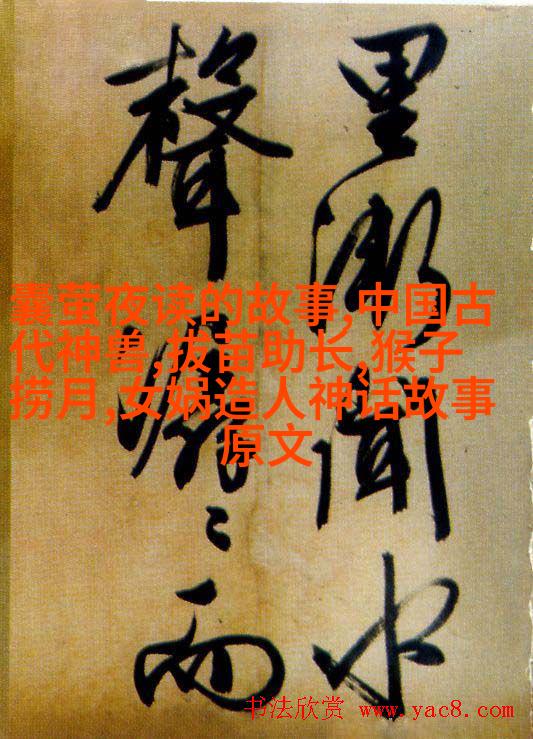 里渐闻水
聲潺〻而
囊萤夜读的故事,中国古
代神兽,拔苗助长,猴子
捞月,女娲造人神话故事
原文
书法欣赏 www.yac8.com